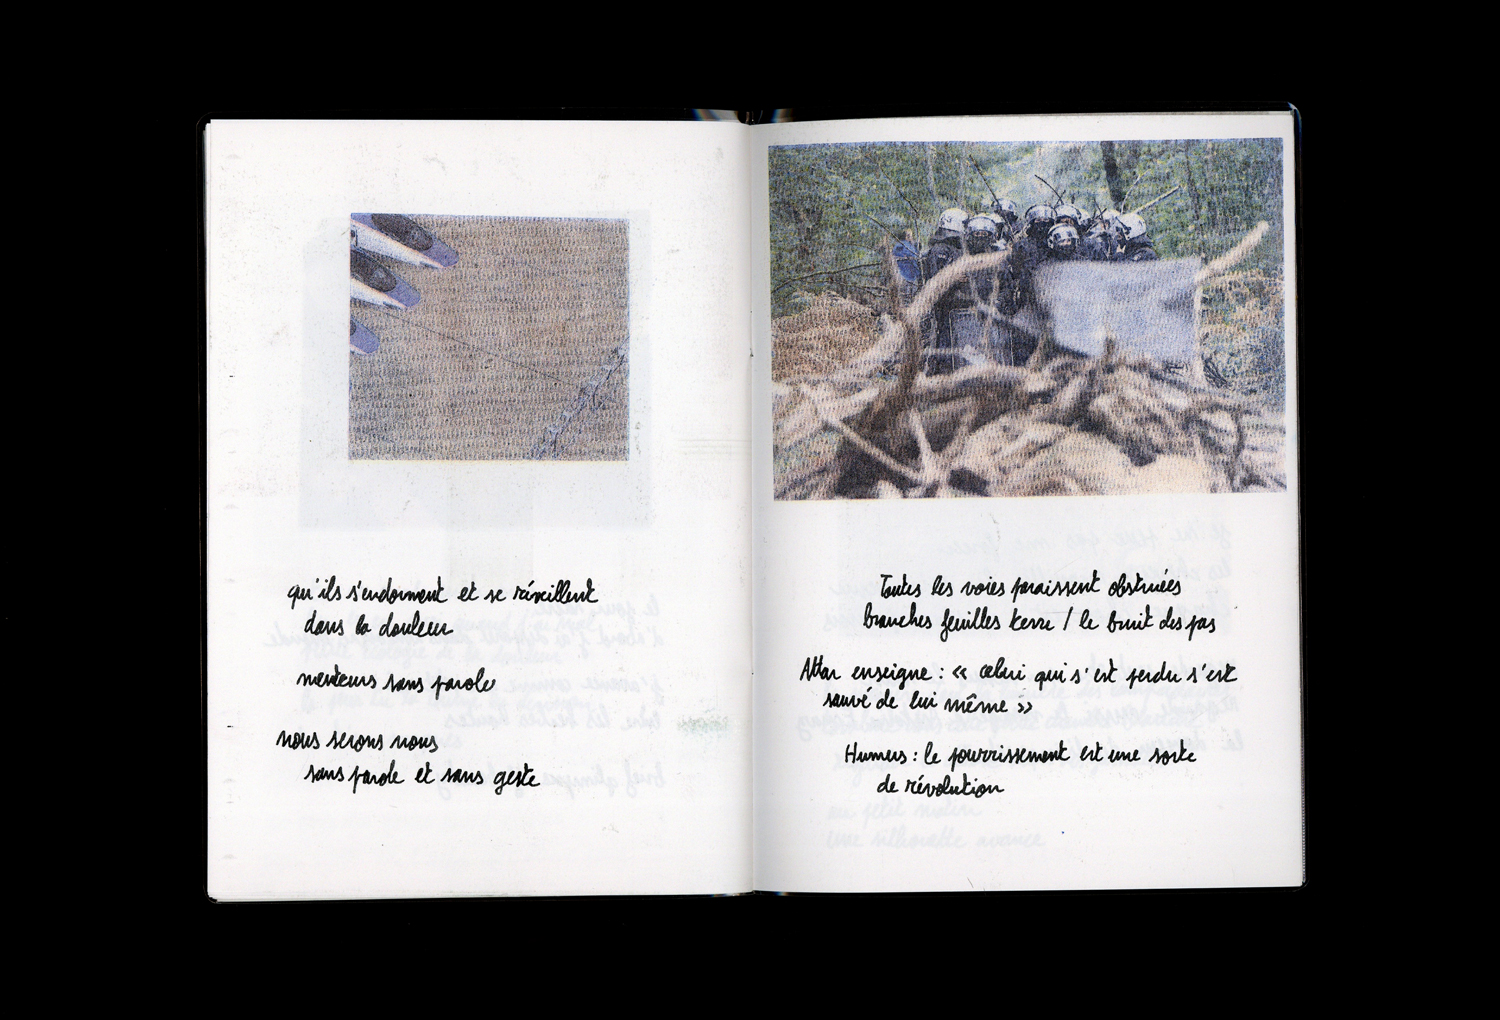 qu'ils s'endorment et se réveillent
dans la douleur
menteurs sans parole
nous serons nous
sans parole et sans geste
Toutes les voies paraissent obstruées
branches feuilles terre / le bruit des pas
Attar enseigne : « celui qui s'est perdu s'est
sauvé de lui même »
Humus : le pourrissement est une sorte
de révolution
au petit matin
une silhouette avance